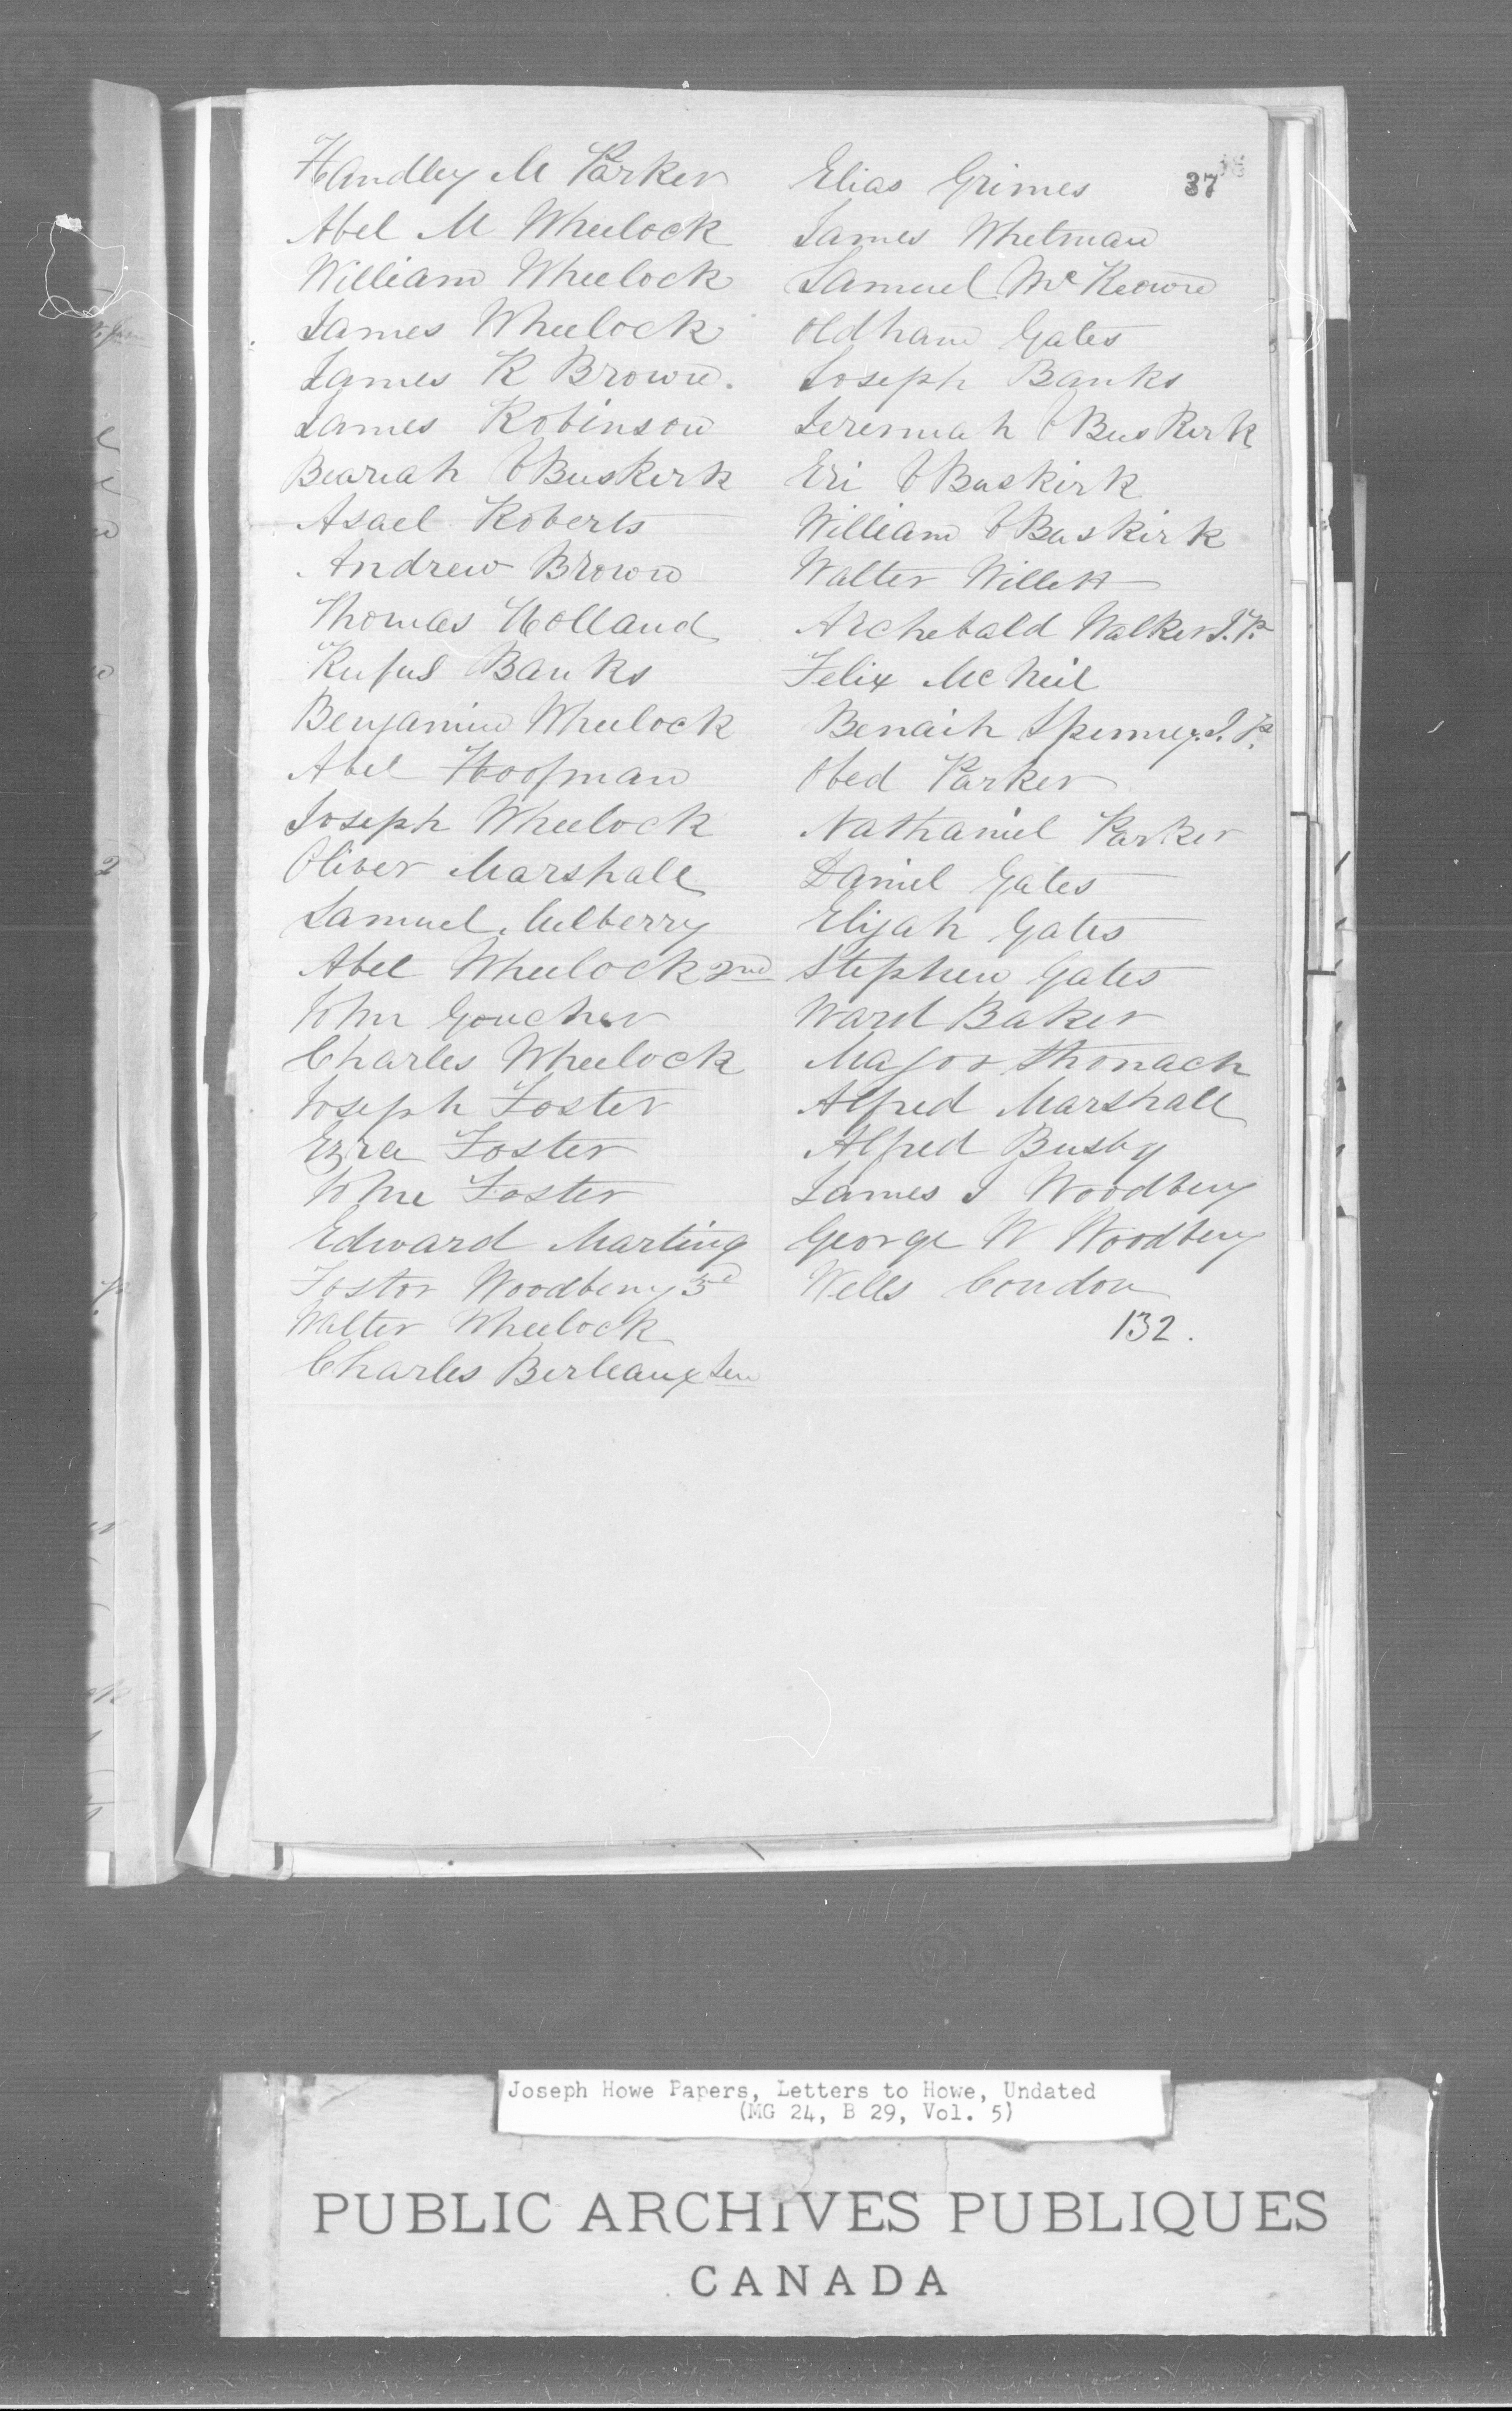 37
Handley M Parker
Abel M Wheelock
William Wheelock
James Wheelock
James R Brown.
James Robinson
Beariah OBuskirk
Asael Roberts
Andrew Brown
Thomas Holland
Rufus Banks
Benjamin Wheelock
Abel Hoofman
Joseph Wheelock
Oliver Marshall
Samuel
Abel Wheelock 2nd
John Goucher
Charles Wheelock
Joseph Foster
Ezra Foster
John Foster
Edward Marting
Foster Woodbery 3d
Walter Wheelock
Charles Berleaux Sen
Elias Grimes
James Whetman
Samuel McKeown
Oldham Gates
Joseph Banks
Jeremiah OBuskirk
Eri OBuskirk
William OBuskirk
Walter Willett
Archebald Walker J.P.
Felix McNeil
Benaih Spinney. J.P.
Obed Parker
Nathaniel Parker
Daniel Gates
Elijah Gates
Stephen Gates
Ward Baker
Major Thonach
Alfred Marshall
Alfred Busby
James J Woodbery
George W Woodbery
Wells Condon
132.
Joseph Howe Papers, Letters to Howe, Undated
(MG 24, B 29, Vol. 5)
PUBLIC ARCHIVES PUBLIQUES
CANADA